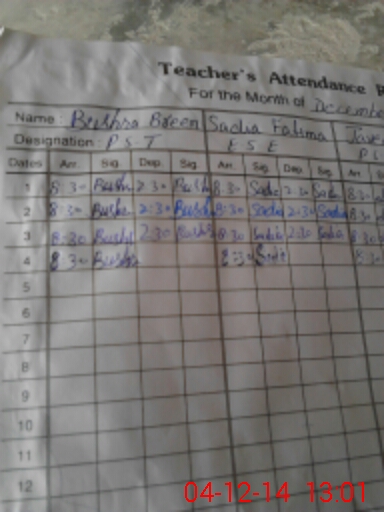 Teacher's Attendance
For the Month of Decembe
Name : Bushra Breen Sadia Fatima Jave
Designation : P S T E S E
Dates Arr. Sig. Dep. Sig. Arr. Sig. Dep. Sig. Arr.
1 8:30 Bush 2:30 Bush 8:30 Sadia 2:30 Sadia 8:30
2 8:30 Bushr 2:30 Bush 8:30 Sadia 2:30 Sadia 8:30
3 8:30 Bush 2:30 Bush 8:30 Sadia 2:30 Sadia 8:30
4 8:30 Bush 8:30 Sadia 8:30
5
6
7
8
9
10
11
12
04-12-14 13:01